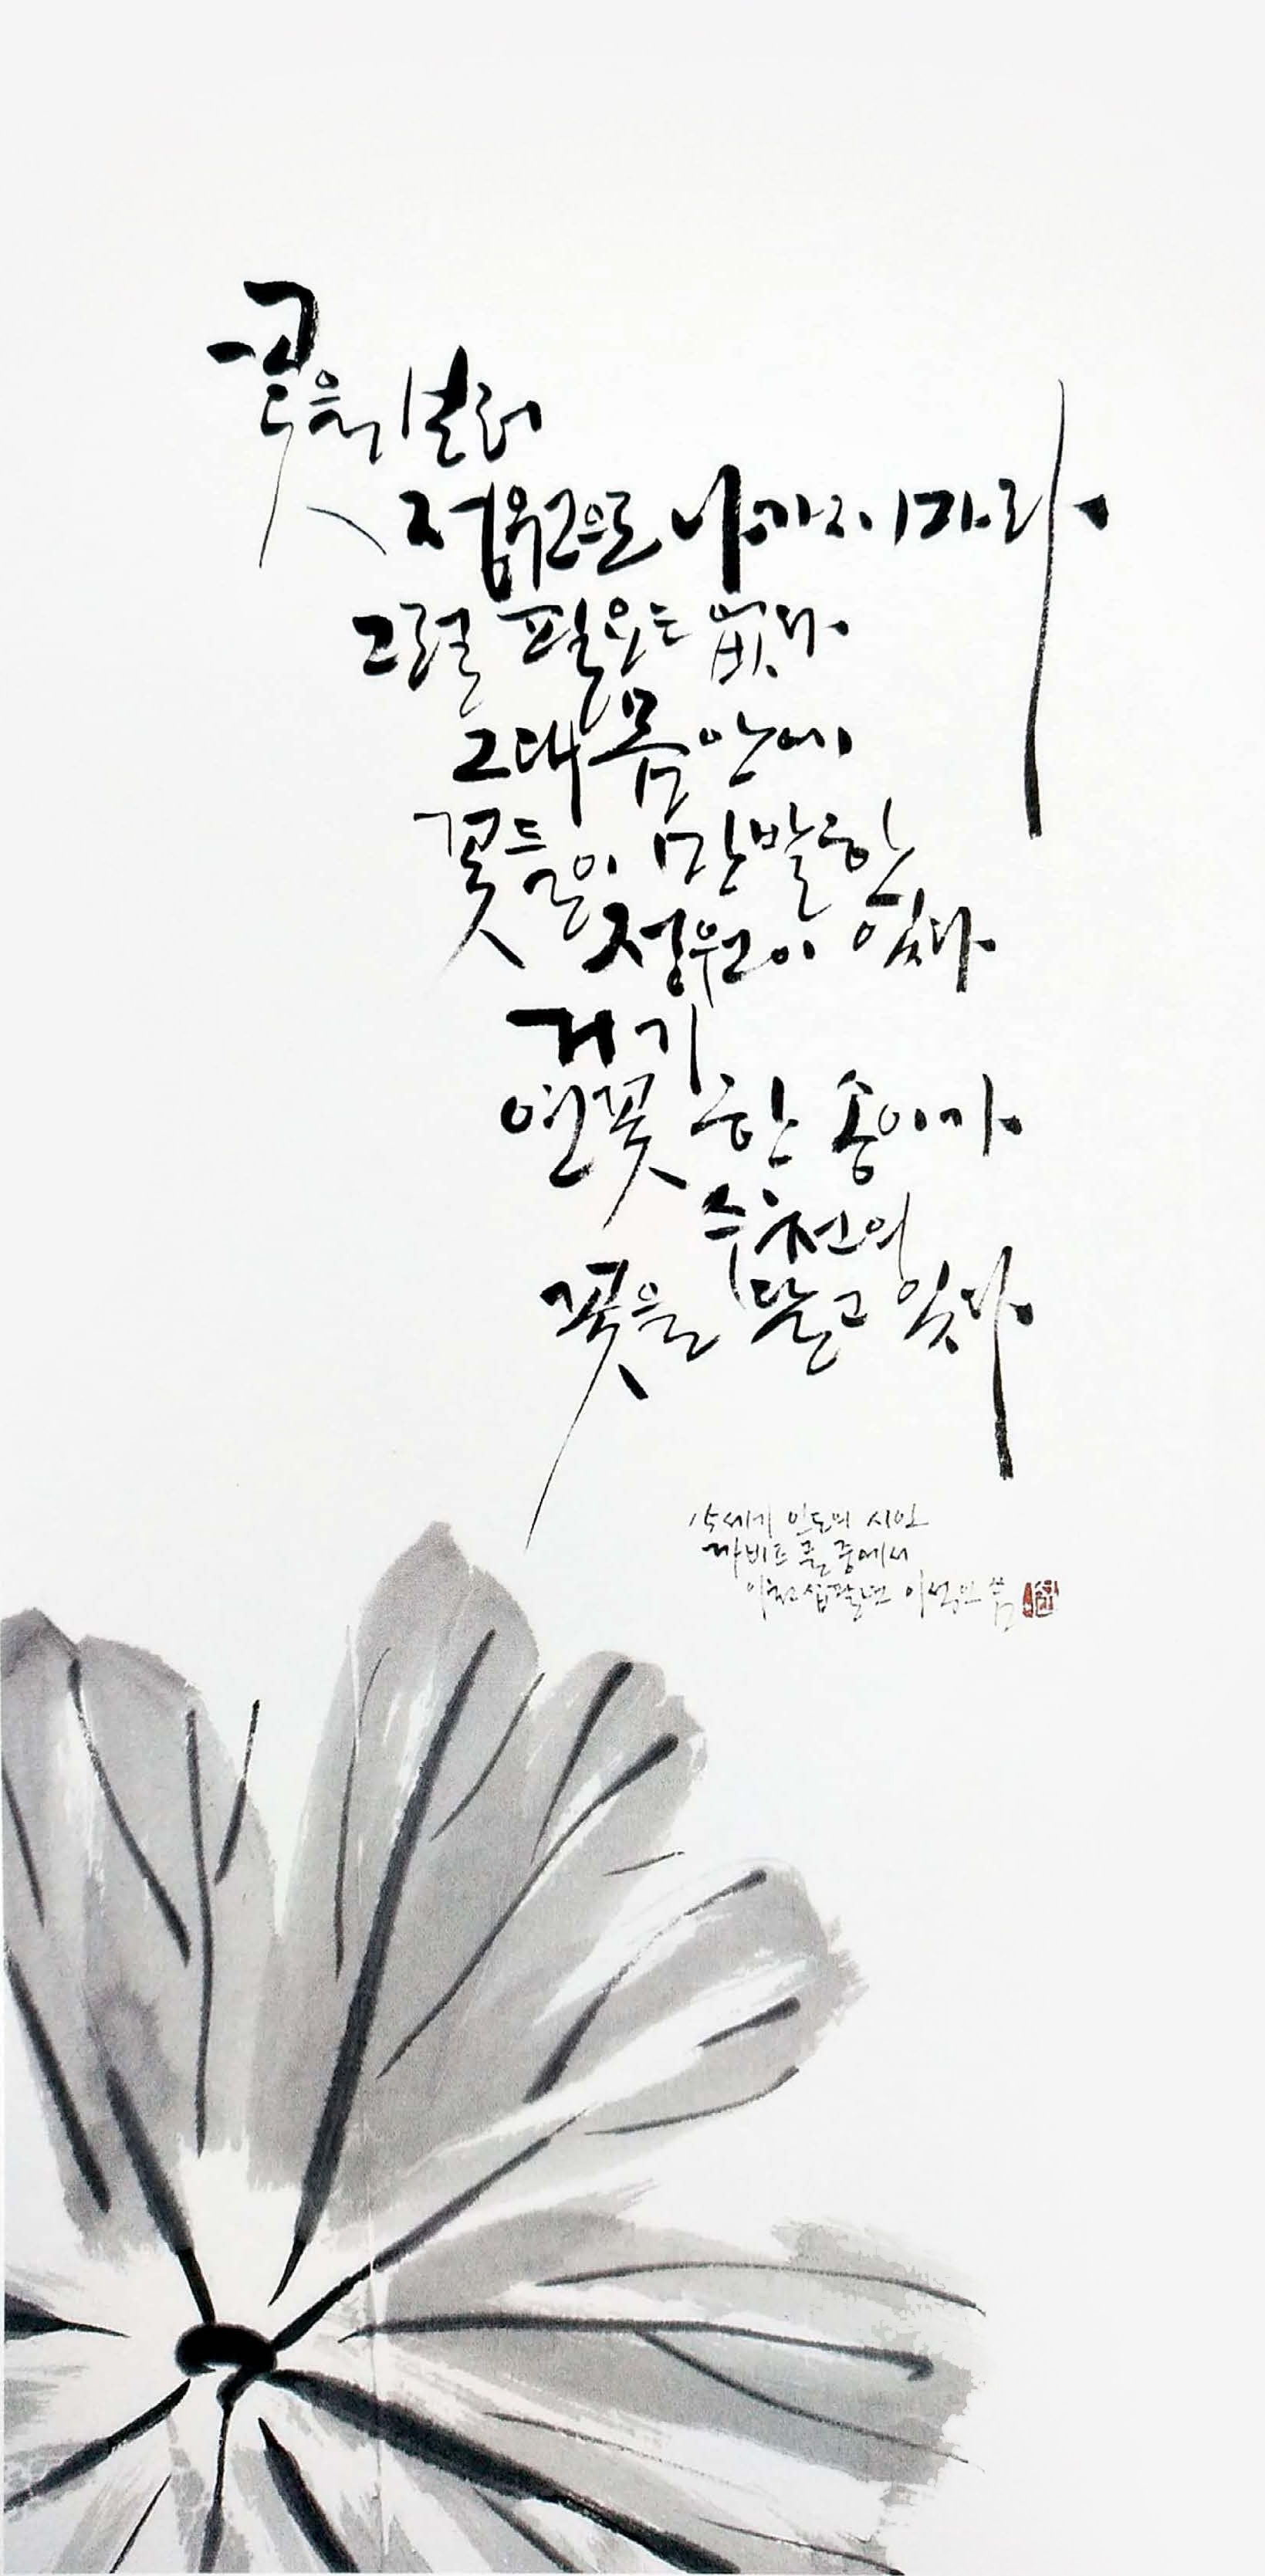 꽃을 보러
정원으로 나가지 마라
그럴 필요는 없다
그대 몸 안에
꽃들이 만발한
정원이 있다
거기
연꽃 한 송이가
수천의
꽃을 달고 있다
15세기 인도의 시인
까비르 글 중에서
이천십팔년 이석인 씀